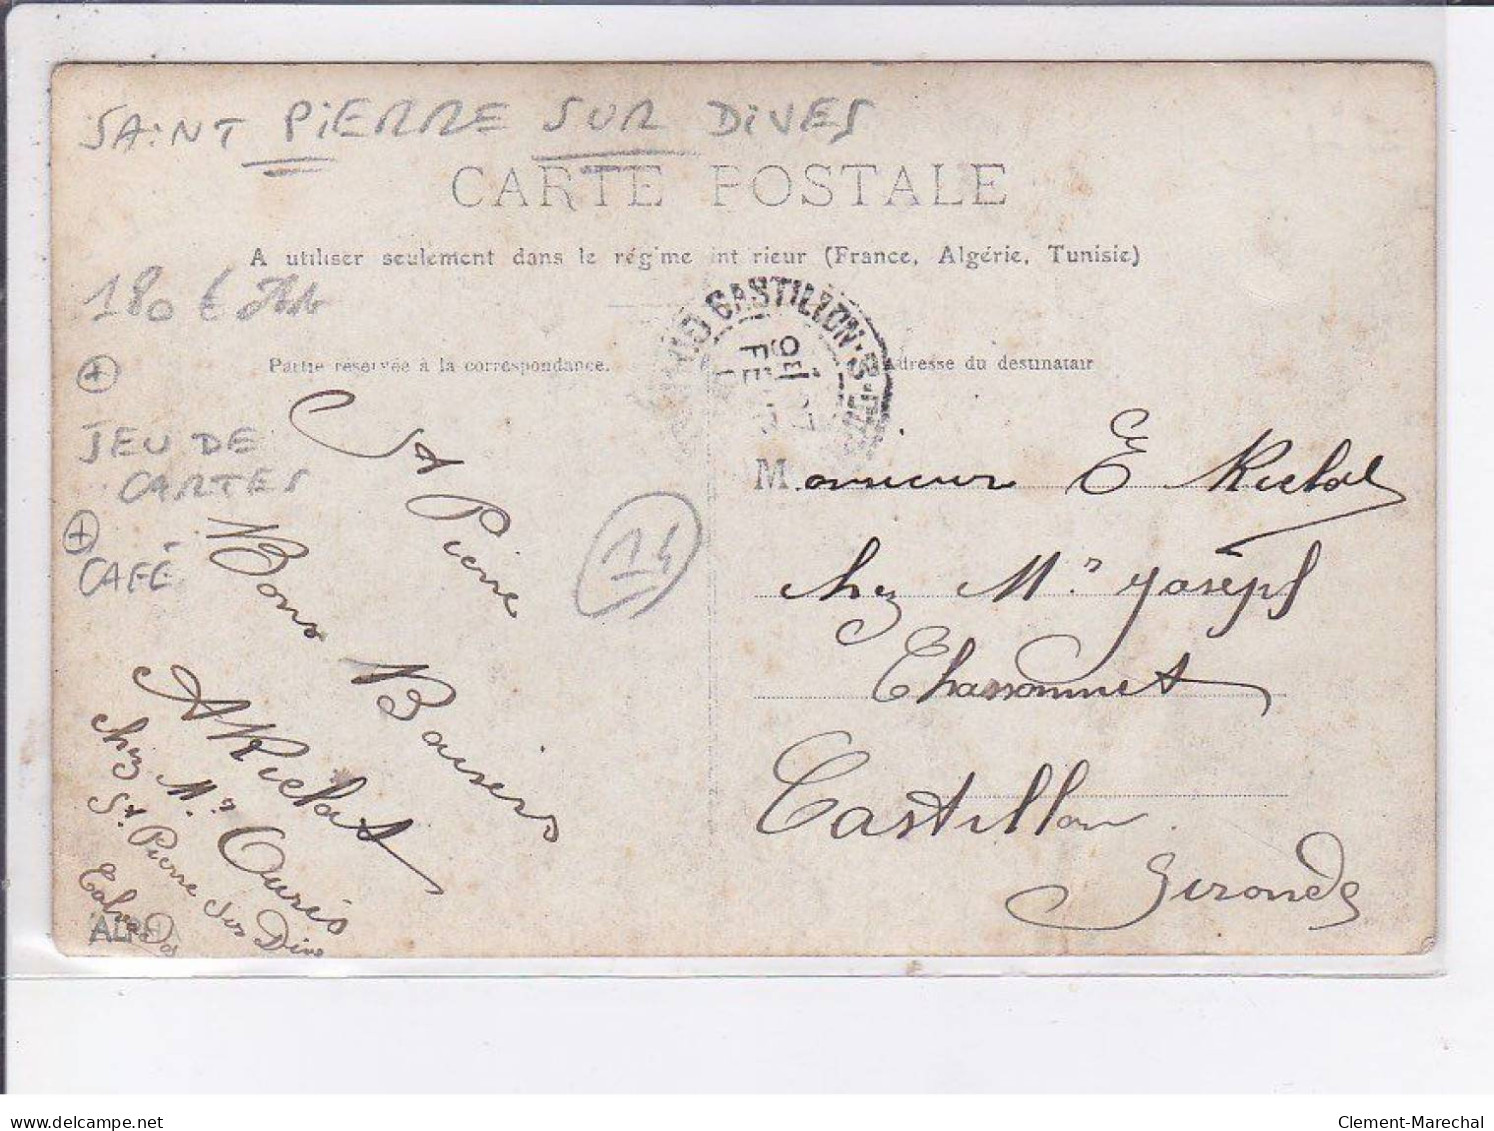 SAINT PIERRE SUR DIVES
CARTE POSTALE
A utiliser seulement dans le régime intérieur (France, Algérie, Tunisie)
180 €
CASTILLON-S-D
Partie réservée à la correspondance.
Adresse du destinatair
+
JEU DE
CARTES
+
CAFÉ
14
St Pierre
Bons Baisers
A Rielat
chez Mr Ouris
St. Pierre sur Dive
Calvados
ALPH
Monsieur E Rielat
chez Mr Joseph
Chassonnet
Castillon
Gironde
delcampe.net
Clement-Marechal